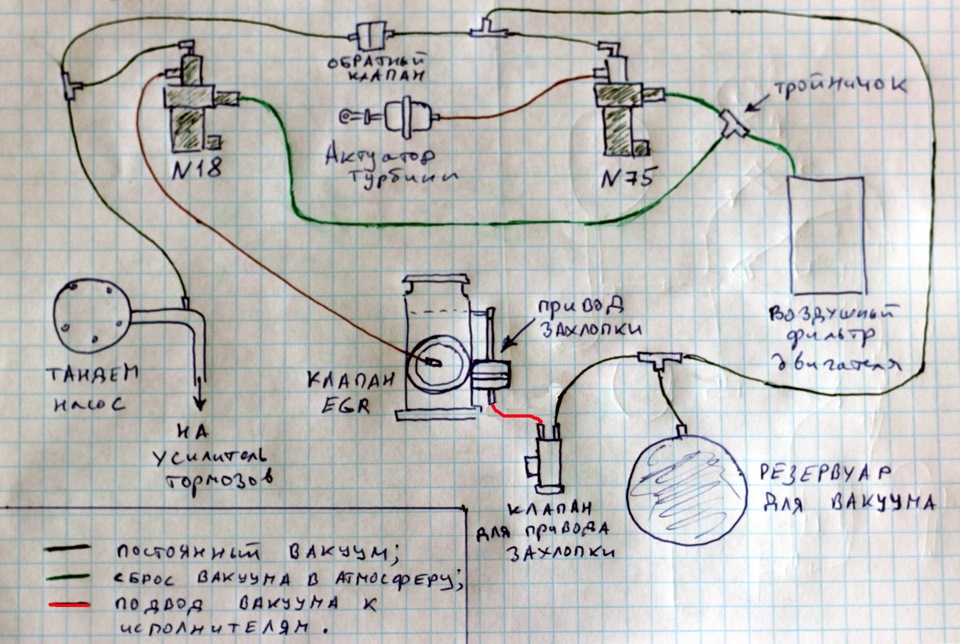 ОБРАТНЫЙ
КЛАПАН
тройничок
Актуатор
турбины
N18
N75
привод
захлопки
воздушный
фильтр
двигателя
ТАНДЕМ
насос
КЛАПАН
EGR
НА
усилитель
тормозов
РЕЗЕРВУАР
для вакуума
КЛАПАН
для привода
захлопки
постоянный вакуум;
сброс вакуума в атмосферу;
подвод вакуума к
исполнителям.